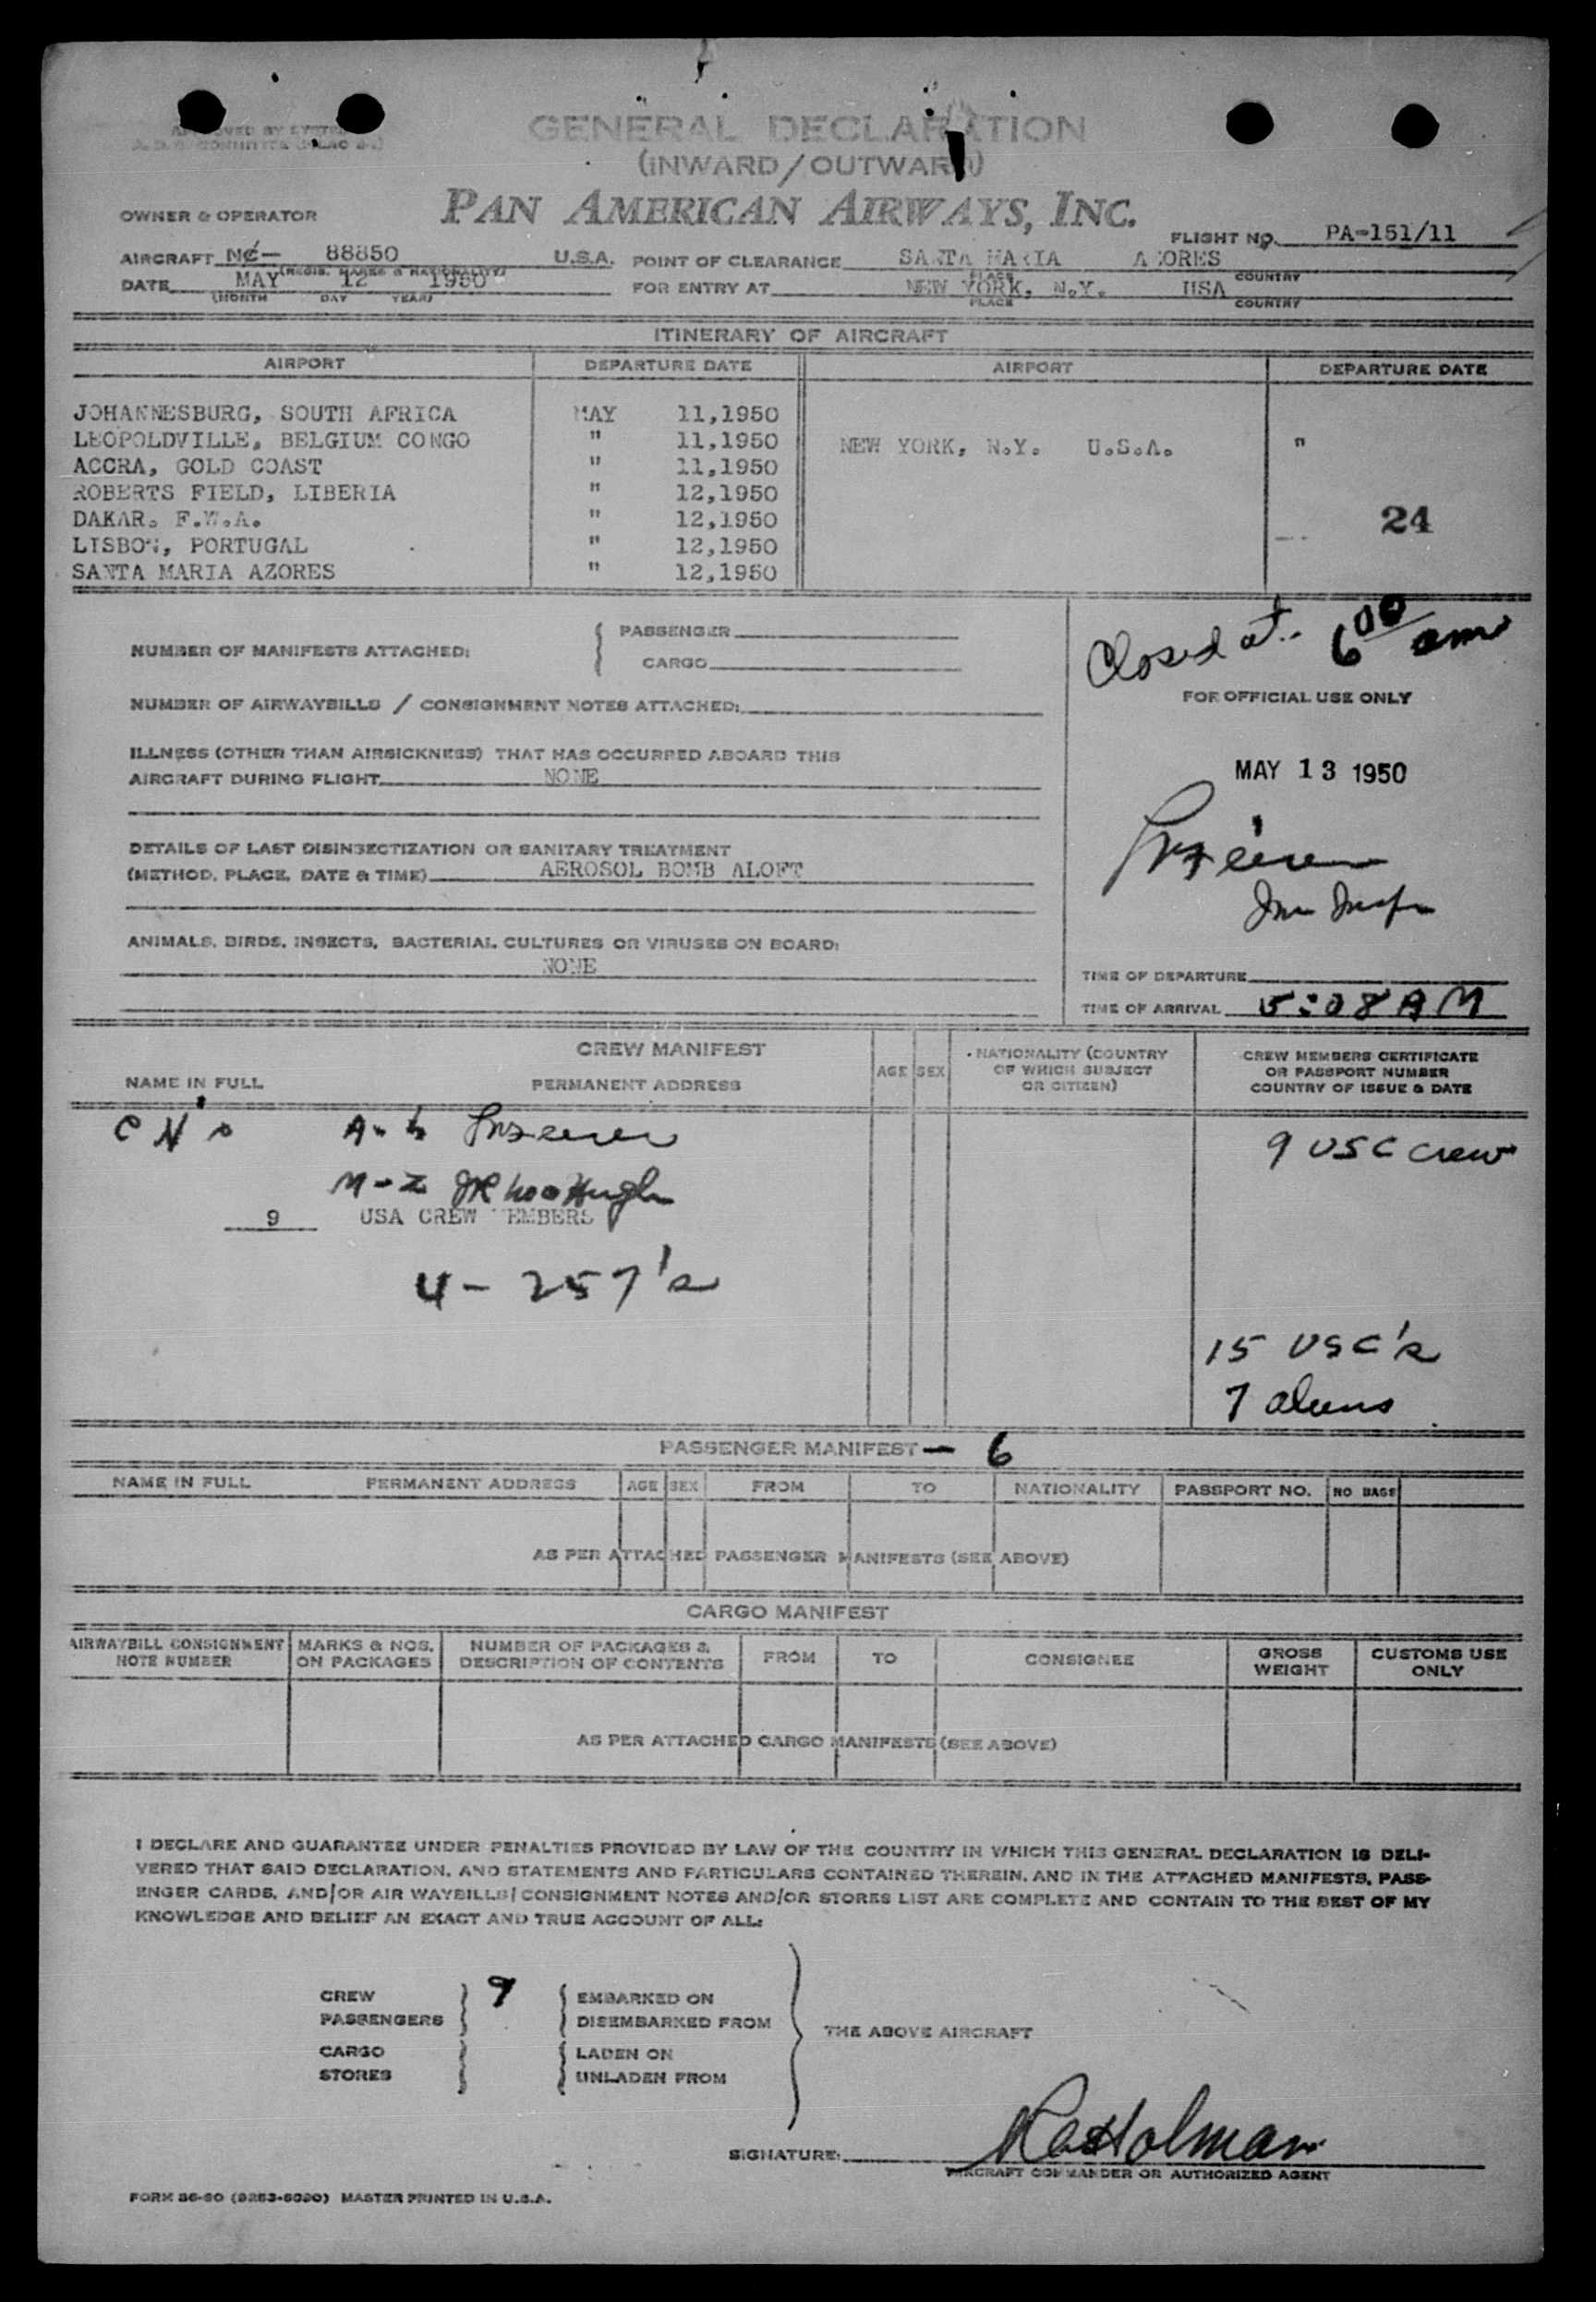 GENERAL DECLARATION
(INWARD/OUTWARD)
PAN AMERICAN AIRWAYS, INC.
OWNER & OPERATOR
FLIGHT NO. PA-151/11
AIRCRAFT NC- 88850 U.S.A. POINT OF CLEARANCE SANTA MARIA AZORES
(REGIS. MARKS & NATIONALITY) PLACE COUNTRY
DATE MAY 12 1950 FOR ENTRY AT NEW YORK, N.Y. USA
(MONTH DAY YEAR) PLACE COUNTRY
ITINERARY OF AIRCRAFT
AIRPORT DEPARTURE DATE AIRPORT DEPARTURE DATE
JOHANNESBURG, SOUTH AFRICA MAY 11,1950
LEOPOLDVILLE, BELGIUM CONGO " 11,1950 NEW YORK, N.Y. U.S.A. "
ACCRA, GOLD COAST " 11,1950
ROBERTS FIELD, LIBERIA " 12,1950
DAKAR. F.W.A. " 12,1950 24
LISBON, PORTUGAL " 12,1950
SANTA MARIA AZORES " 12,1950
Closed at 6 00 am
NUMBER OF MANIFESTS ATTACHED: PASSENGER
CARGO
FOR OFFICIAL USE ONLY
NUMBER OF AIRWAYBILLS / CONSIGNMENT NOTES ATTACHED:
ILLNESS (OTHER THAN AIRSICKNESS) THAT HAS OCCURRED ABOARD THIS
AIRCRAFT DURING FLIGHT NONE
MAY 13 1950
DETAILS OF LAST DISINSECTIZATION OR SANITARY TREATMENT
(METHOD, PLACE, DATE & TIME) AEROSOL BOMB ALOFT
Imm Insp
ANIMALS, BIRDS, INSECTS, BACTERIAL CULTURES OR VIRUSES ON BOARD:
NONE
TIME OF DEPARTURE
TIME OF ARRIVAL 5:08 AM
CREW MANIFEST
NAME IN FULL PERMANENT ADDRESS AGE SEX NATIONALITY (COUNTRY OF WHICH SUBJECT OR CITIZEN) CREW MEMBERS CERTIFICATE OR PASSPORT NUMBER COUNTRY OF ISSUE & DATE
A-L
9 USC crew
M-Z
9 USA CREW MEMBERS
4 - 257's
15 USC's
7 aliens
PASSENGER MANIFEST - 6
NAME IN FULL PERMANENT ADDRESS AGE SEX FROM TO NATIONALITY PASSPORT NO. NO BAGS
AS PER ATTACHED PASSENGER MANIFESTS (SEE ABOVE)
CARGO MANIFEST
AIRWAYBILL CONSIGNMENT NOTE NUMBER MARKS & NOS. ON PACKAGES NUMBER OF PACKAGES & DESCRIPTION OF CONTENTS FROM TO CONSIGNEE GROSS WEIGHT CUSTOMS USE ONLY
AS PER ATTACHED CARGO MANIFESTS (SEE ABOVE)
I DECLARE AND GUARANTEE UNDER PENALTIES PROVIDED BY LAW OF THE COUNTRY IN WHICH THIS GENERAL DECLARATION IS DELI-
VERED THAT SAID DECLARATION, AND STATEMENTS AND PARTICULARS CONTAINED THEREIN, AND IN THE ATTACHED MANIFESTS, PASS-
ENGER CARDS, AND/OR AIR WAYBILLS/CONSIGNMENT NOTES AND/OR STORES LIST ARE COMPLETE AND CONTAIN TO THE BEST OF MY
KNOWLEDGE AND BELIEF AN EXACT AND TRUE ACCOUNT OF ALL:
CREW 9 EMBARKED ON
PASSENGERS DISEMBARKED FROM
THE ABOVE AIRCRAFT
CARGO LADEN ON
STORES UNLADEN FROM
SIGNATURE: Holman
AIRCRAFT COMMANDER OR AUTHORIZED AGENT
MASTER PRINTED IN U.S.A.